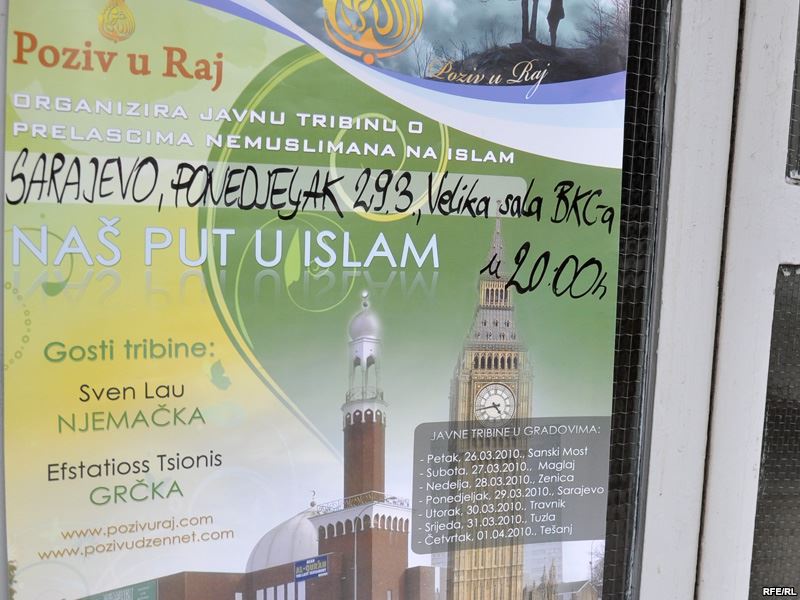 Poziv u Raj
Poziv u Raj
ORGANIZIRA JAVNU TRIBINU O
PRELASCIMA NEMUSLIMANA NA ISLAM
SARAJEVO, PONEDJELJAK 29.3., Velika sala BKC-a
u 20:00h
NAŠ PUT U ISLAM
Gosti tribine:
Sven Lau
NJEMAČKA
Efstatioss Tsionis
GRČKA
www.pozivuraj.com
www.pozivudzennet.com
JAVNE TRIBINE U GRADOVIMA:
- Petak, 26.03.2010., Sanski Most
- Subota, 27.03.2010., Maglaj
- Nedelja, 28.03.2010., Zenica
- Ponedjeljak, 29.03.2010., Sarajevo
- Utorak, 30.03.2010., Travnik
- Srijeda, 31.03.2010., Tuzla
- Četvrtak, 01.04.2010.. Tešanj
AL-QURAN
RFE/RL